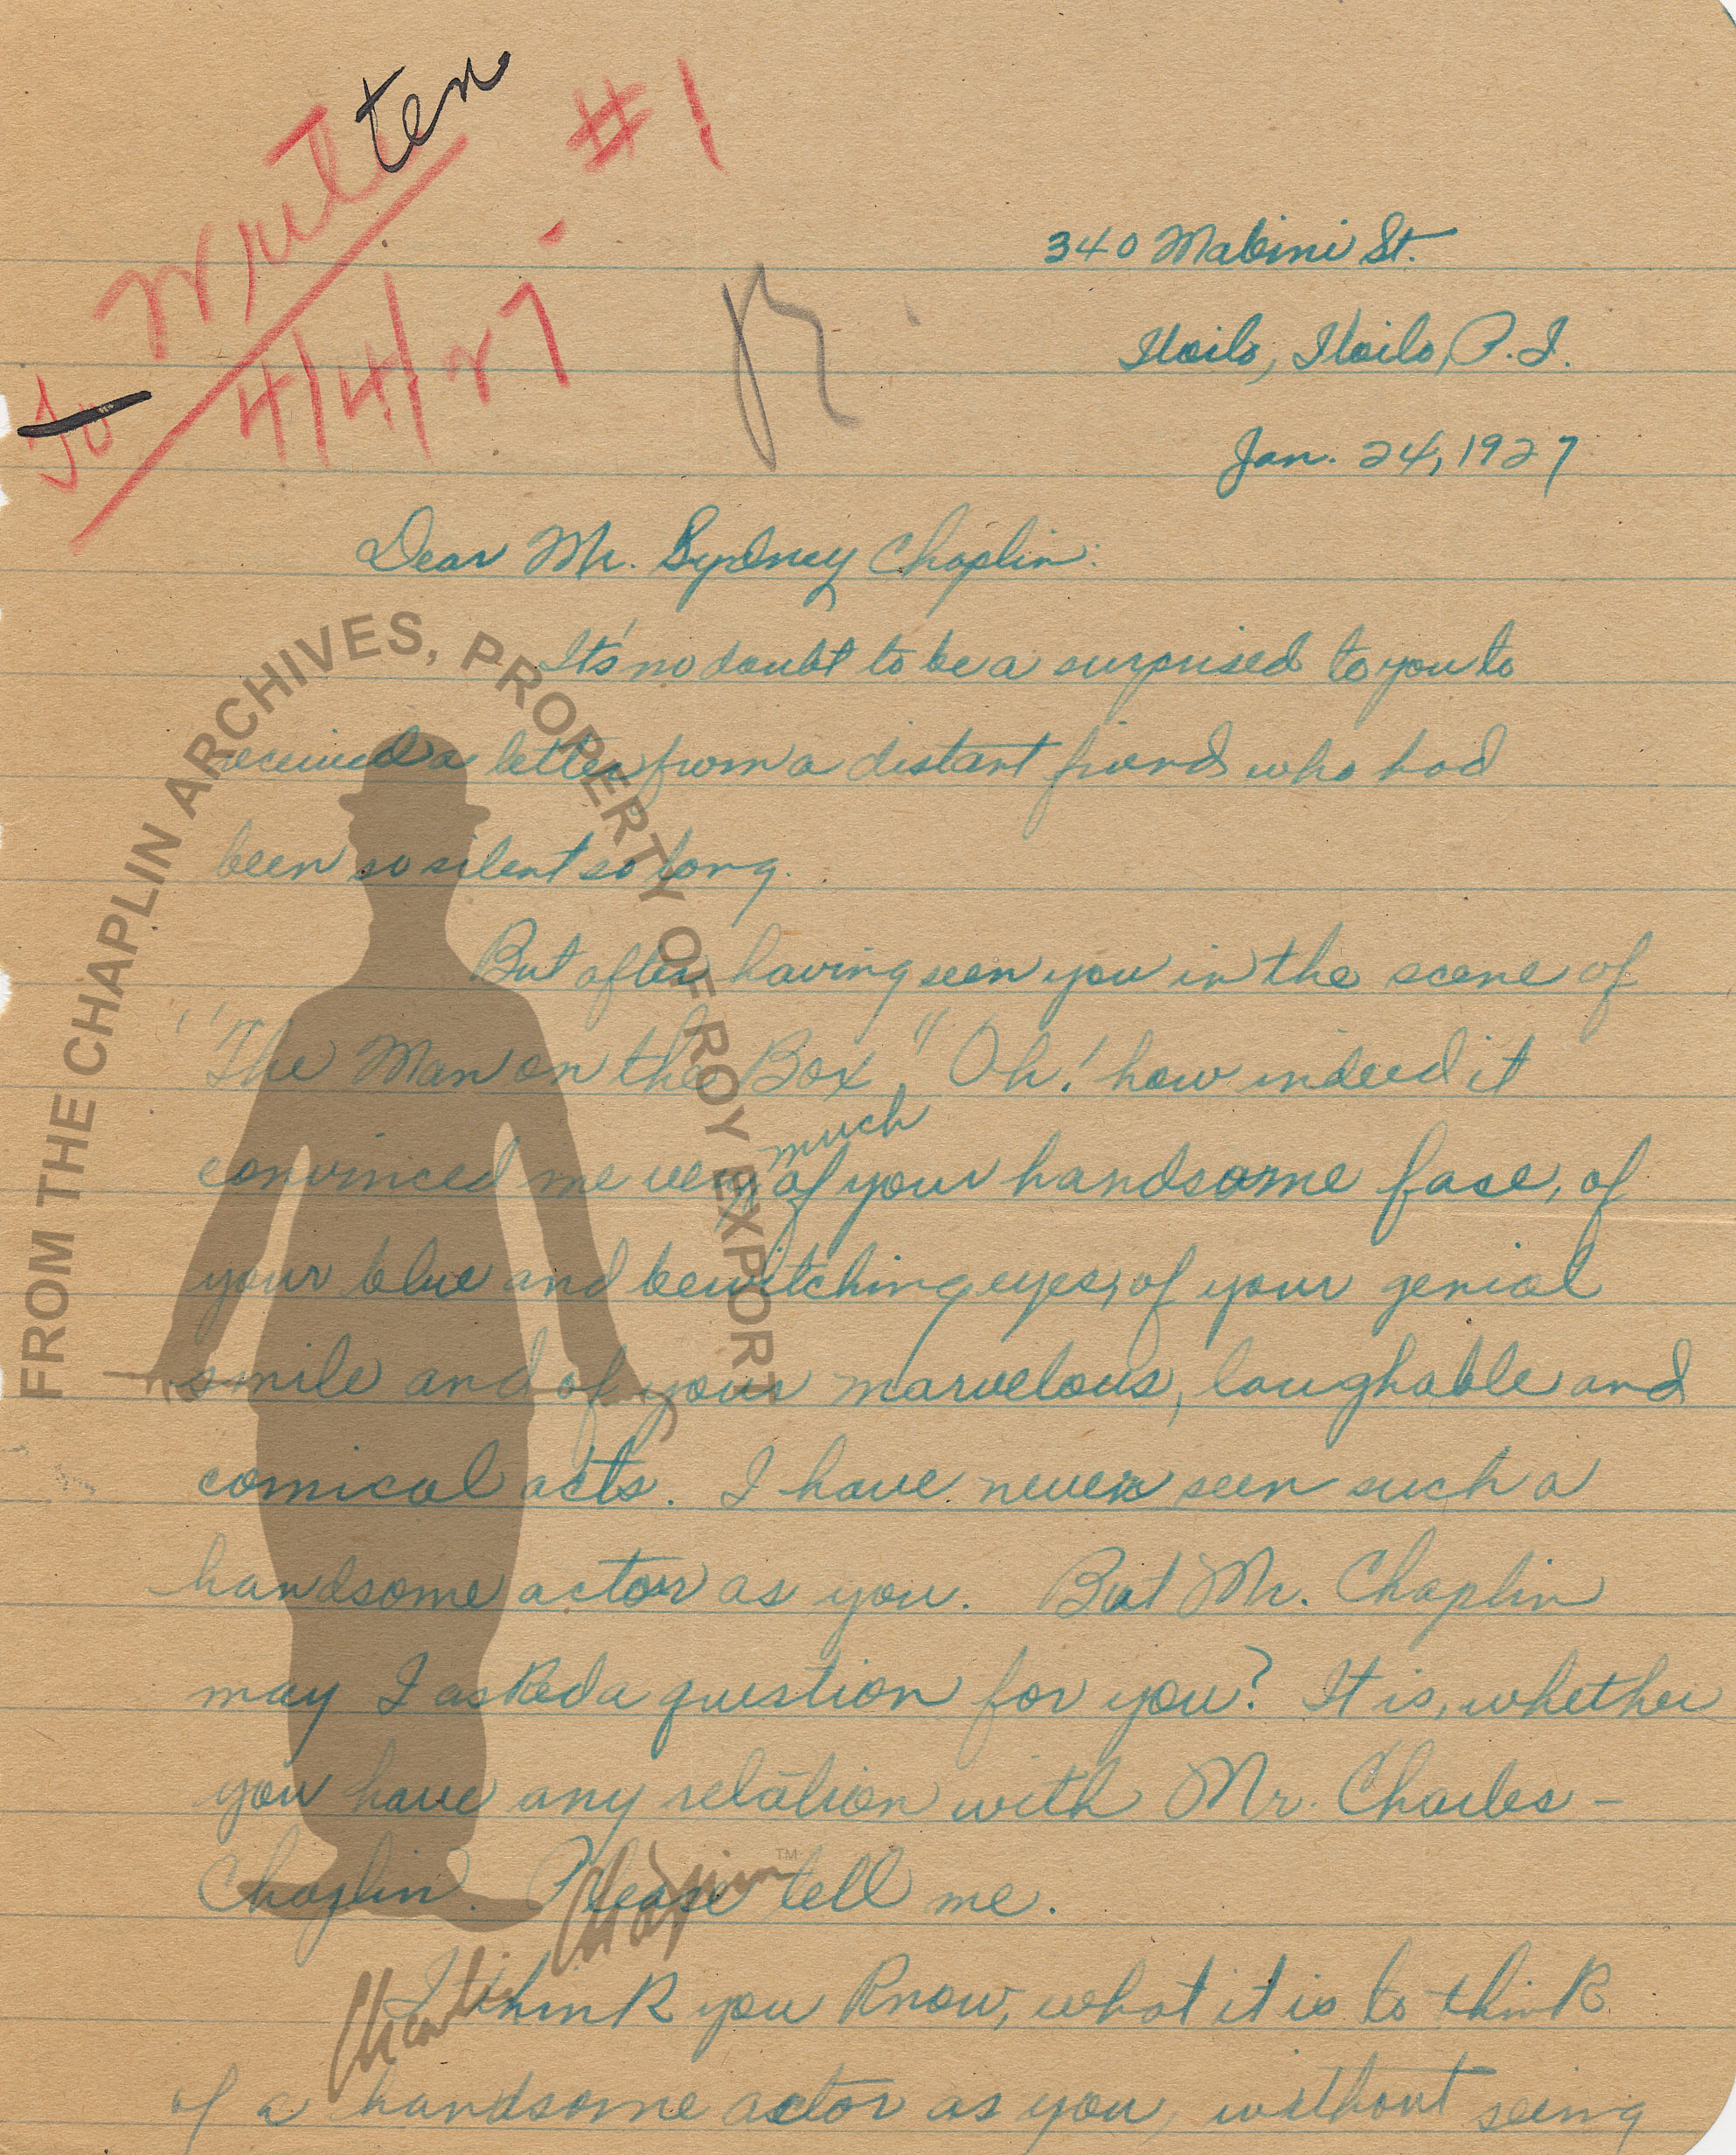 Written #1
To
4/4/27
340 Mabini St.
Iloilo, Iloilo, P.I.
Jan. 24, 1927
Dear Mr. Sydney Chaplin:
It's no doubt to be a surprised to you to
received a letter from a distant friend who had
been so silent so long.
But after having seen you in the scene of
"The Man on the Box," Oh! how indeed it
convinced me very much of your handsome fase, of
your blue and bewitching eyes, of your genial
smile and of your marvelous, laughable and
comical acts. I have never seen such a
handsome actor as you. But Mr. Chaplin
may I asked a question for you? It is, whether
you have any relation with Mr. Charles -
Chaplin. Please tell me.
I think you know, what it is to think
of a handsome actor as you, without seeing
FROM THE CHAPLIN ARCHIVES, PROPERTY OF ROY EXPORT
Charlie Chaplin™